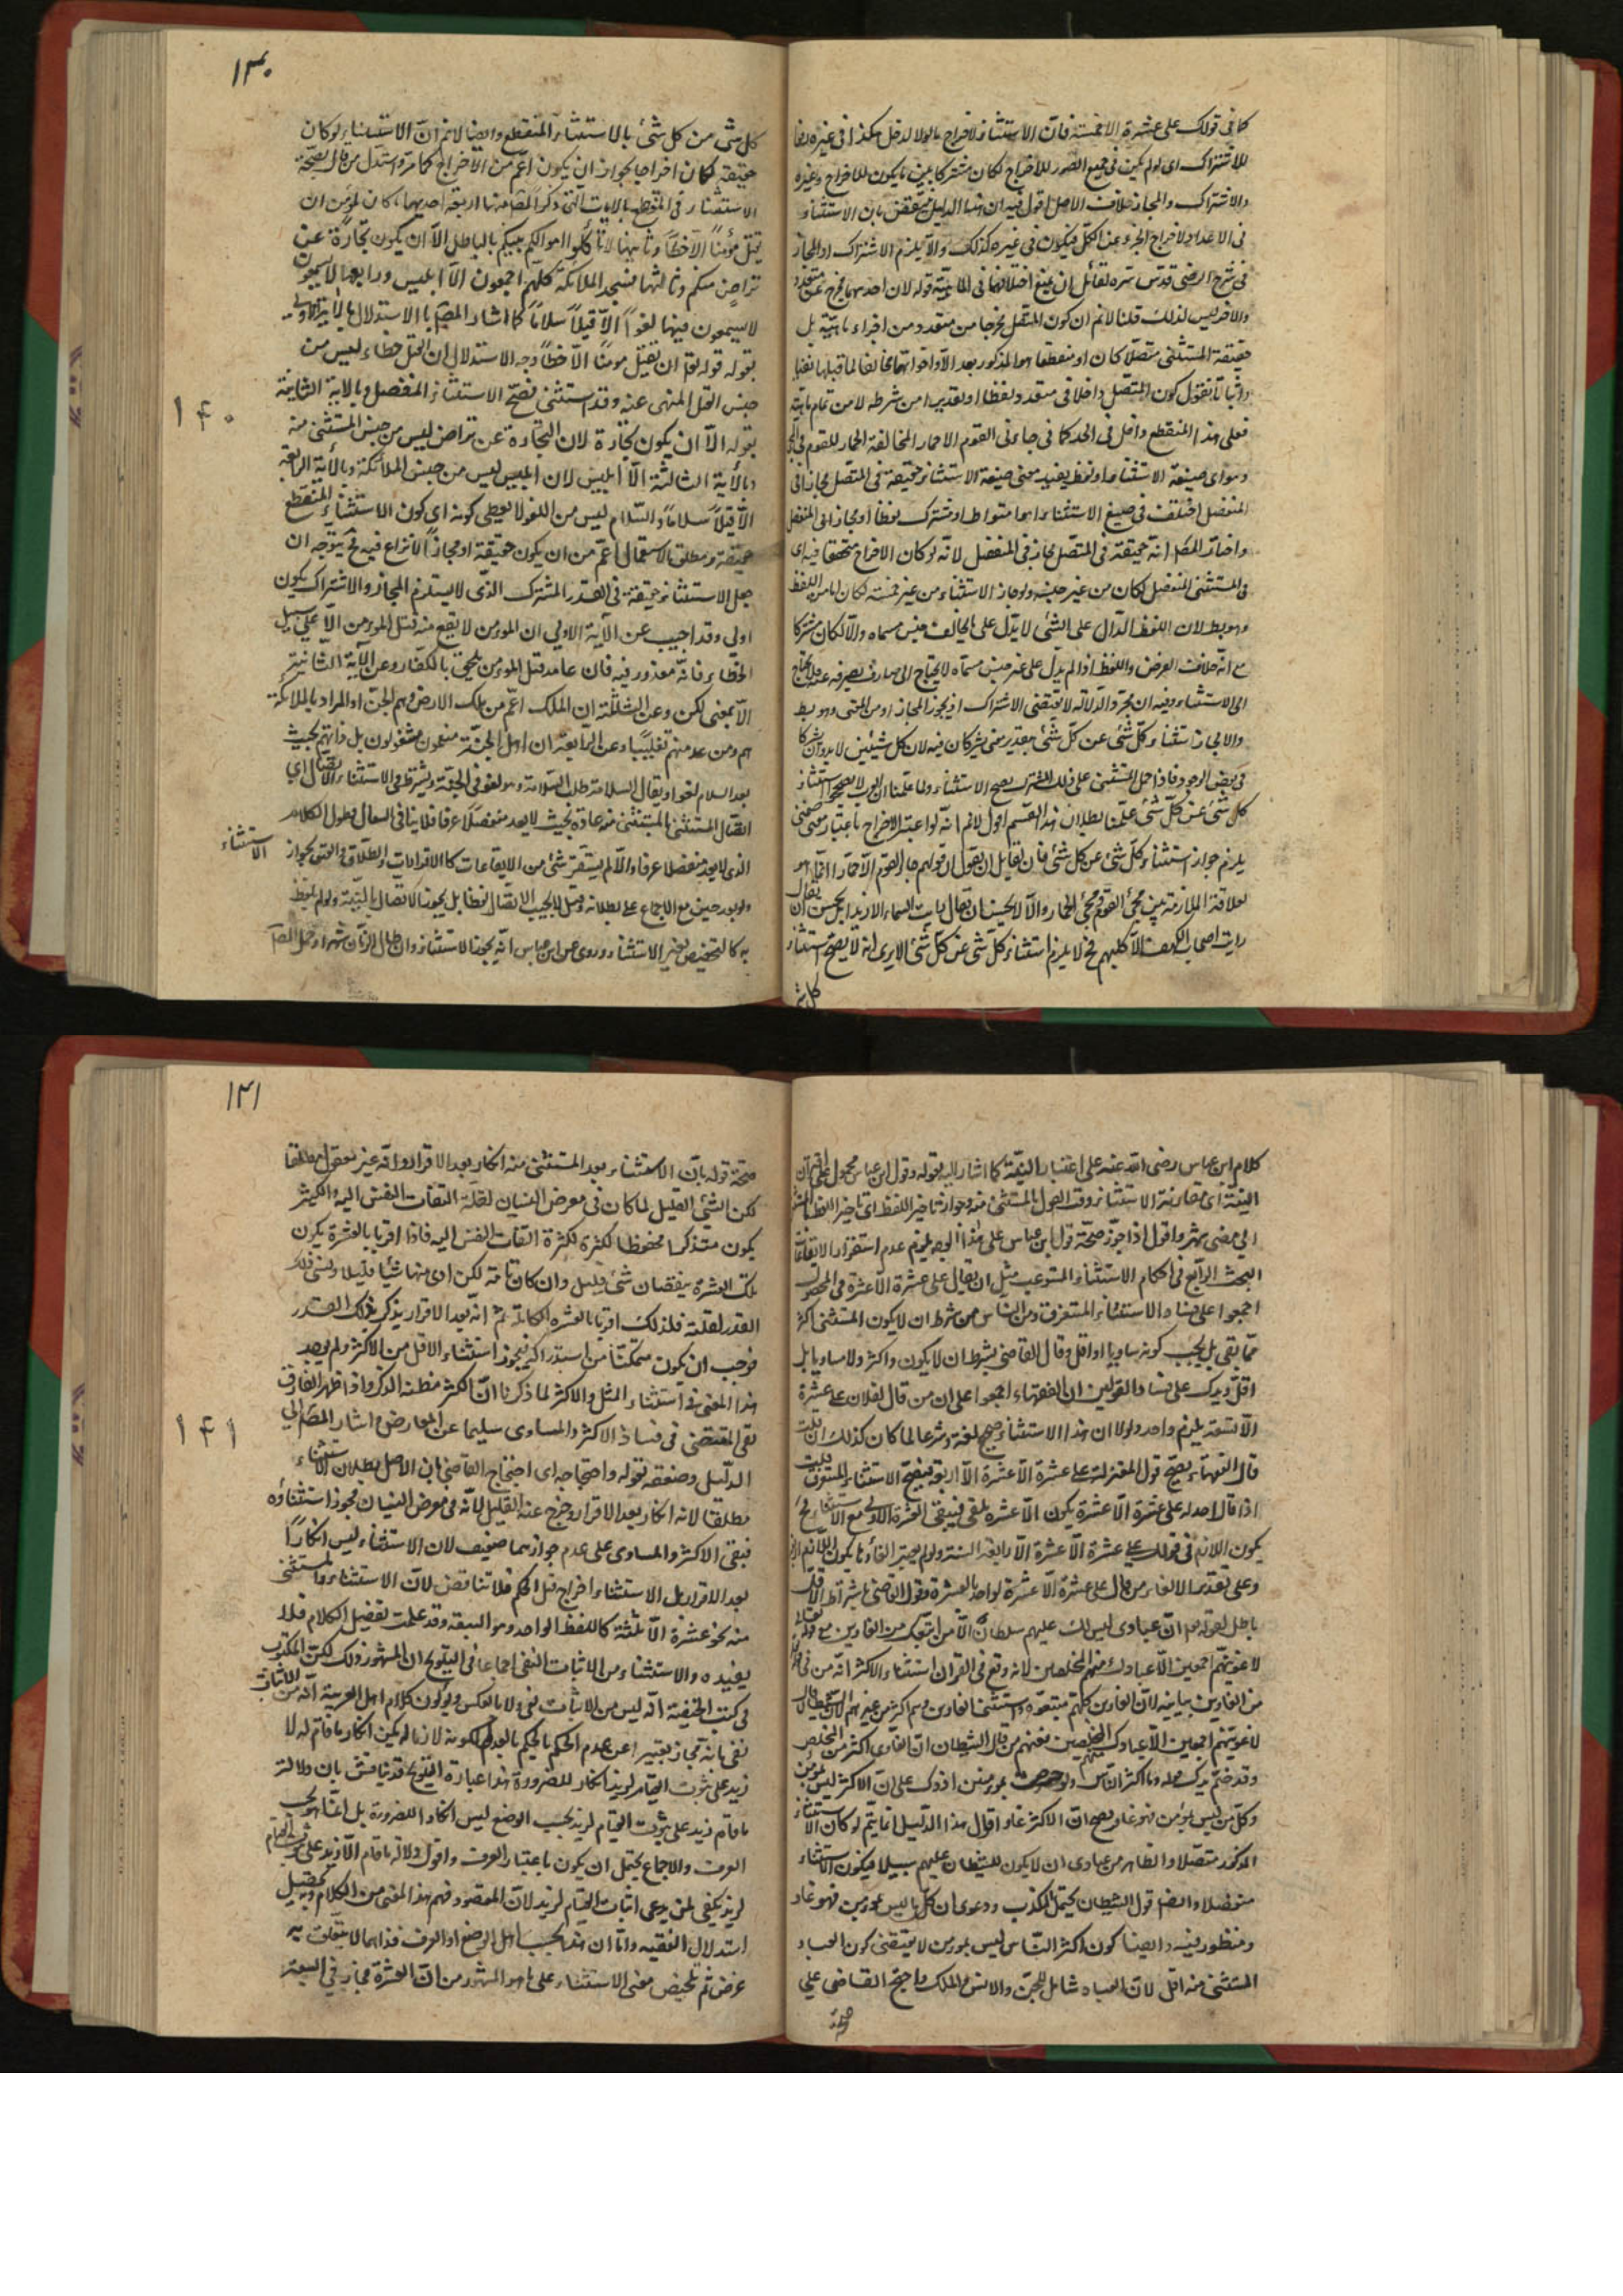 كما في قولك على عشرة الا خمسة فان الاستثناء لاخراج ما لولا لدخل هكذا في غيره دفعا
للاشتراك اى لو لم يكن في جميع الصور للاخراج لكان مشتركا بين ما يكون للاخراج وغيره
والاشتراك والمجاز خلاف الاصل اقول فيه ان هذا الدليل منتقض بان الاستثناء
في الاعداد لاخراج الجزء عن الكل فيكون في غيره كذلك والا يلزم الاشتراك او المجاز
في شرح الرضى قدس سره لقائل ان يمنع اختلافهما في الماهية قوله لان احدهما مخرج عن متعدد
والآخر ليس كذلك قلنا لانم ان كون المتصل مخرجا من متعدد من اجزاء ماهيته بل
حقيقة المستثنى متصلا كان او منقطعا هو المذكور بعد الا واخواتها مخالفا لما قبلها نفيا
واثباتا نقول كون المتصل داخلا في متعدد لفظا او تقديرا من شرطه لا من تمام ماهيته
فعلى هذا المنقطع داخل في الحد كما في جاءنى القوم الا حمار المخالفة الحمار للقوم في
صيغة الاستثناء او لفظ يفيد معنى صيغة الاستثناء حقيقة في المتصل مجاز في
المنفصل اختلف في صيغ الاستثناء اهو متواط او مشترك لفظا او مجاز في المنفصل
واختار المص انه حقيقة في المتصل مجاز في المنفصل لانه لو كان الاخراج متحققا فيه اى
في المستثنى المنفصل لكان من غير جنسه ولو جاز الاستثناء من غير جنسه لكان اما من اللفظ
وهو بط لان اللفظ الدال على الشئ لا يدل على ما يخالف جنس مسماه والا لكان مشتركا
مع انه خلاف الفرض واللفظ اذا لم يدل على غير جنس مسماه لا يحتاج الى صارف يصرفه عنه
الى الاستثناء وفيه ان مجرد الدلالة لا تقتضى الاشتراك اذ يجوز المجاز او من المعنى وهو بط
والا لجاز استثناء كل شئ عن كل شئ بتقدير معنى يشتركان فيه لان كل شيئين لا بد وان يشتركا
في بعض الوجوه فاذا حمل المستثنى على ذلك المشترك يصح الاستثناء ولما علمنا ان العرب لا يصحح استثناء
كل شئ عن كل شئ علمنا بطلان هذا القسم اقول لانم انه لو اعتبر الاخراج باعتبار معنى
يلزم جواز استثناء كل شئ عن كل شئ فان لقايل ان يقول ان قولهم جاء القوم الا حمارا انما هو
لعلاقة الملازمة بين مجئ القوم ومجئ الحمار والا لا يحسن ان يقال
رايت اصحاب الكهف الا كلبهم فح لا يلزم استثناء كل شئ عن كل شئ الا يرى انه لا يصح استثناء
كل شئ
١٣٠
كل شئ من كل شئ بالاستثناء المنقطع وايضا لانم ان الاستثناء لو كان
حقيقة لكان اخراجا لجواز ان يكون اعم من الاخراج كما مر واستدل من قال بصحة
الاستثناء في المنقطع بالايات التى ذكر المص منها اربعة احديهما ما كان لمؤمن ان
يقتل مؤمنا الا خطا وثانيهما لا تأكلوا اموالكم بينكم بالباطل الا ان يكون تجارة عن
تراض منكم وثالثها فسجد الملائكة كلهم اجمعون الا ابليس ورابعها لا يسمعون
لا يسمعون فيها لغوا الا قيلا سلاما كما اشار المص الى الاستدلال
بقوله قوله تع ان يقتل مومنا الا خطأ وجه الاستدلال ان القتل خطاء ليس من
جنس القتل المنهى عنه وقد استثنى فصح الاستثناء المنفصل وبالاية الثانية
بقوله الا ان يكون تجارة لان التجارة عن تراض ليس من جنس المستثنى منه
وبالأية الثالثة الا ابليس لان ابليس ليس من جنس الملائكة وبالأية الرابعة
الا قيلا سلاما والسلام ليس من اللغو لا يعطى كونه اى كون الاستثناء المنقطع
حقيقة ومطلق الاستعمال اعم من ان يكون حقيقة او مجازا لا نزاع فيه فح يتوجه ان
جعل الاستثناء حقيقة في القدر المشترك الذى لا يستلزم المجاز والاشتراك يكون
اولى وقد اجيب عن الآية الاولى ان المومن لا يقع منه قتل المومن الا على سبيل
الخطاء فانه معذور فيه فان عامد قتل المومن يلحق بالكفار وعن الآية الثانية
الا بمعنى لكن وعن الثالثة ان الملك اعم من ملك الارض وهم الجن او المراد بالملائكة
هم ومن عد منهم تغليبا وعن الرابعة ان اهل الجنة منعمون مشغولون بل ذاتهم بحيث
يعد السلام لغوا او يقال السلامة طلب السلامة وهو لغو في الجنة ويشترط في الاستثناء الاتصال اي
اتصال المستثنى بالمستثنى منه عادة بحيث لا يعد منفصلا عرفا فلا ينافى السعال وطول الكلام
الاستثناء
الذى لا يعد منفصلا عرفا والا لم يستقر شئ من الايقاعات كالاقرارات والطلاق والعتق لجواز
ولو بعد حين مع الاجماع على بطلانه وقيل لا يجب الاتصال لفظا بل يجوز الاتصال بالنية ولو لم يلفظ
به كالتخصيص بغير الاستثناء وروى عن ابن عباس انه يجوز الاستثناء وان طال الزمان شهرا وحمل المص
١٤٠
كلام ابن عباس رضى الله عنه على اعتبار النية كما اشار اليه بقوله وقول ابن عباس محمول على
النية اى مقارنة الاستثناء وقت القول بالمستثنى منه وجواز تاخير اللفظ اى تاخير اللفظ
الى مضى شهر واقول اذا جوز صحة قول ابن عباس على هذا الوجه يلزم عدم استقرار الايقاعات
البحث الرابع في احكام الاستثناء المستوعب مثل ان يقال على عشرة الا عشرة في المحصول
اجمعوا على فساد الاستثناء المستغرق ومن الناس من شرط ان لا يكون المستثنى اكثر
مما بقى بل يجب كونه مساويا او اقل وقال القاضى يشترط ان لا يكون اكثر ولا مساويا بل
اقل ويدل على فساد القولين ان الفقهاء اجمعوا على ان من قال لفلان على عشرة
الا تسعة يلزم واحد ولولا ان هذا الاستثناء صحيح لغة وشرعا لما كان كذلك
قال الفقهاء يصح قول المقر له على عشرة الا عشرة الا اربعة فيصح الاستثناء المستغرق
اذا قال احد له على عشرة الا عشرة يكون الا عشرة ملغى فيبقى العشرة الاولى مع الاستثناء
يكون اللازم في قولك على عشرة الا عشرة الا رابعة الستة ولو لم يعتبر الغاؤها يكون اللازم
وعلى تقدير الالغاء من قال على عشرة الا عشرة لواحد بالعشرة وقول القاضى باشتراط الاقل
باطل لقوله تع ان عبادى ليس لك عليهم سلطان الا من اتبعك من الغاوين مع قوله
لاغوينهم اجمعين الا عبادك منهم المخلصين لانه وقع في القرآن استثناء الاكثر
من الغاوين بيانية لان الغاوين كلهم متبعوه واستثنى الغاوين وهم اكثر من غيرهم
لاغوينهم اجمعين الا عبادك منهم المخلصين فعلم من قال الشيطان ان الغاوى اكثر من المخلص
وقد ختم بذلك قوله وما اكثر الناس ولو حرصت بمومنين اذ دل على ان الاكثر ليس بمومن
وكل من ليس بمؤمن فهو غاو يصح ان الاكثر غاو اقول هذا الدليل انما يتم لو كان الاستثناء
المذكور متصلا والظاهر من عبادى ان لا يكون للشيطان عليهم سبيلا فيكون الاستثناء
منفصلا وايضا قول الشيطان يحتمل الكذب ودعوى ان كل ما ليس بمومن فهو غاو
ومنظور فيه وايضا كون اكثر الناس ليس بمومن لا يقتضى كون العباد
المستثنى منه اقل لان العباد شامل للجن والانس والملك واحتج القاضى على
صحة
١٣١
صحة قوله بان الاستثناء بعد المستثنى منه انكار بعد الاقرار وانه غير معقول مطلقا
لكن الشئ القليل لما كان في معرض النسيان لقلة التفات النفس اليه والكثير
يكون متذكرا محفوظا لكثرة التفات النفس اليه فاذا اقر بالعشرة يكون
تلك العشرة بنقصان شئ قليل وان كان تامة لكن ادى منها شيئا قليلا ونسى ذلك
القدر لقلته فلذلك اقر بالعشرة الكاملة ثم انه بعد الاقرار يذكر بذلك القدر
فوجب ان يكون متمكنا من استدراكه فيجوز استثناء الاقل من الاكثر ولم يوجد
هذا المعنى في استثناء المثل والاكثر لما ذكرنا ان الكثير مظنة الذكر واذا ظهر الفارق
بقى المقتضى في فساد الاكثر والمساوى سليما عن المعارض واشار المص الى
الدليل وضعفه بقوله واحتجاجه اى احتجاج القاضى بان الاصل بطلان الاستثناء
مطلقا لانه انكار بعد الاقرار وخرج عنه القليل لانه في معرض النسيان فجوز استثناؤه
فبقى الاكثر والمساوى على عدم جوازهما ضعيف لان الاستثناء ليس انكارا
بعد الاقرار بل الاستثناء اخراج قبل الحكم فلا تناقض لان الاستثناء والمستثنى
منه نحو عشرة الا ثلثة كاللفظ الواحد وهو السبعة وقد علمت تفصيل الكلام فلا
يفيده والاستثناء من الاثبات النفى اجماعا في التلويح ان المشهور ذلك لكن المكتوب
في كتب الحنفية انه ليس من الاثبات نفى ولا بالعكس ولو كون كلام اهل العربية انه من الاثبات
نفى بانه مجاز تعبيرا عن عدم الحكم بالحكم بالعدم لكونه لازما له لكن انكار ما قام له لا
زيد على ثبوت القيام لزيد انكار للضرورة هذا عبارة التلويح قد يناقش بان دلالة
ما قام زيد على ثبوت القيام لزيد بحسب الوضع ليس انكارا للضرورة بل انما هو بحسب
العرف والاجماع يحتمل ان يكون باعتبار العرف واقول دلالة ما قام الا زيد على ثبوت القيام
لزيد يكفى لمن يدعى اثبات القيام لزيد لان المقصود فهم هذا المعنى من الكلام وبه يحصل
استدلال الفقيه واما ان هذا بحسب اهل الوضع او العرف فذا مما لا يتعلق به
غرض ثم تلخيص معنى الاستثناء على ما هو المشهور من ان العشرة مجاز في السبعة
١٤١